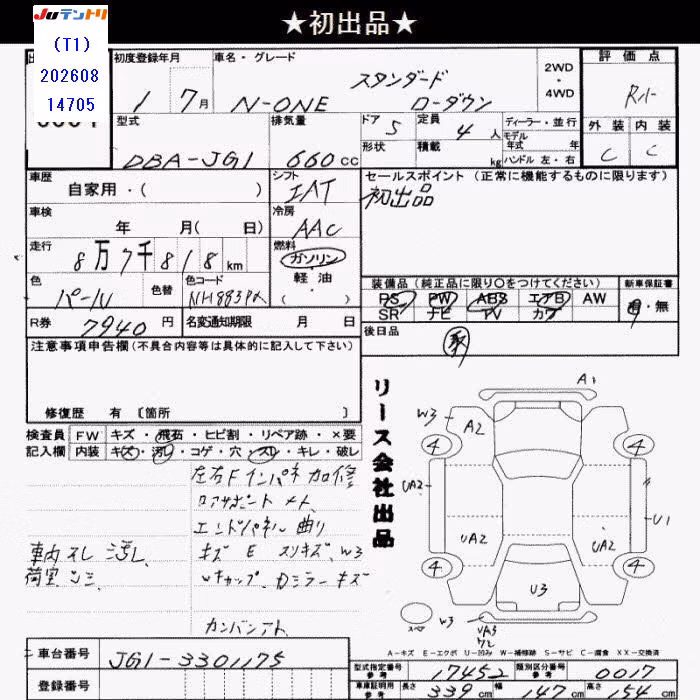 JUテントリ
★初出品★
(T1)
202608
14705
初度登録年月
車名・グレード
2WD
・
4WD
評価点
1 7月
N-ONE
スタンダード
ローダウン
外装
内装
C
C
型式
DBA-JG1
排気量
660cc
ドア 5
形状
定員 4人
積載 kg
ディーラー・並行
モデル年式 年
ハンドル 左・右
車歴
自家用・( )
シフト
セールスポイント(正常に機能するものに限ります)
初出品
車検
年 月( 日)
冷房
AAC
走行
8万7千818km
燃料
ガソリン
軽・油
( )
色
パール
色替
色コード
装備品(純正品に限り○をつけてください)
新車保証書
PS PW ABS エアB AW
SR ナビ TV カワ
有・無
R券
7940円
名変通知期限 月 日
後日品
注意事項申告欄(不具合内容等は具体的に記入して下さい)
修復歴 有 〔箇所 〕
リース会社出品
検査員
記入欄
FW キズ・飛石・ヒビ割・リペア跡・×要
内装 キズ・汚レ・コゲ・穴・スレ・キレ・破レ
左右Fインパネ加修
エンドパネル曲り
車内スレ 汚レ
キズ E スリキズ W3
カンバンアト
A1
W3
A2
4
4
UA2
U1
UA2
UA2
4
4
U3
W3
スペア
A-キズ E-エクボ U-凹み W-補修跡 S-サビ C-腐食 XX-交換済
車台番号
JG1-3301175
登録番号
型式指定番号 参考
17452
類別区分番号 参考
0017
車庫証明用 参考
長さ 339cm
幅 147cm
高さ 154cm